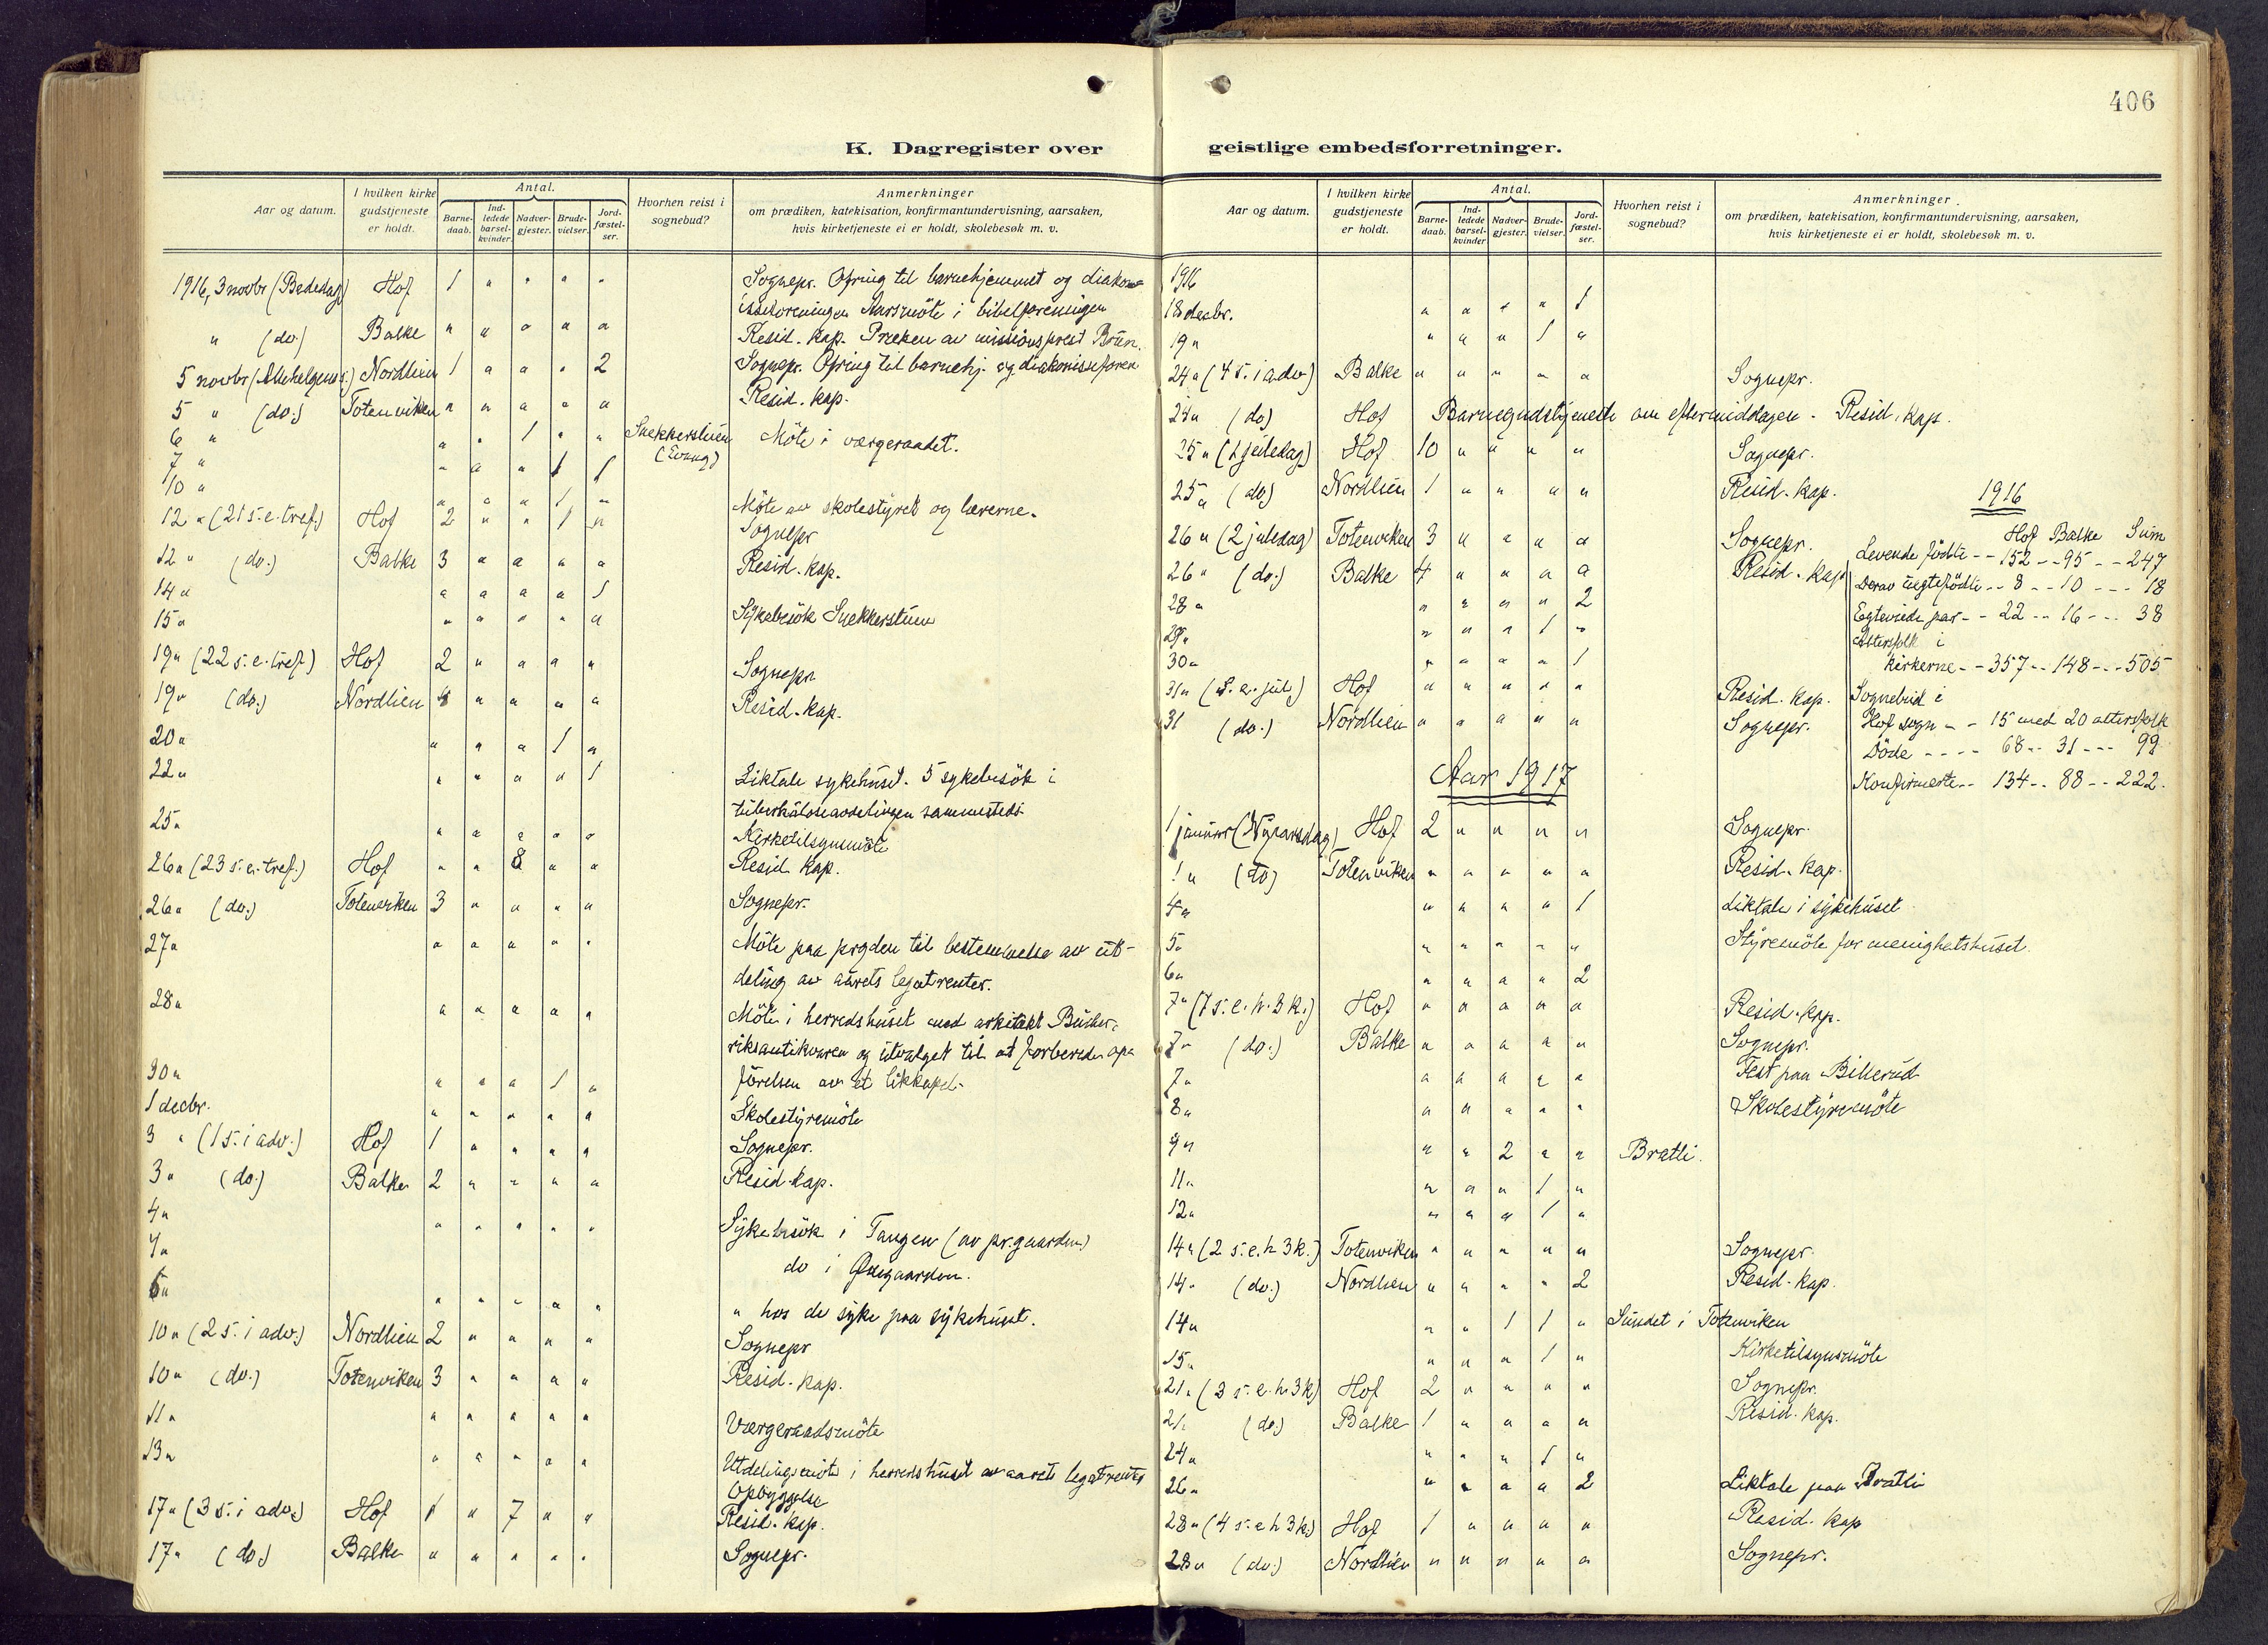 406
K. Dagregister over geistlige embedsforretninger.
Aar og datum. I hvilken kirke gudstjeneste er holdt. Antal. Barne-daab. Ind-ledede barsel-kvinder. Nadver-gjester. Brude-vielser. Jord-fæstel-ser. Hvorhen reist i sognebud? Anmerkninger om prædiken, katekisation, konfirmantundervisning, aarsaken, hvis kirketjeneste ei er holdt, skolebesøk m. v.
1916, 3 novbr (Bededag) Hof 1 " " " " Sognepr. Ofring til barnehjemmet og diakon-
isseforeningen Aarsmöte i bibelforeningen
" (do.) Balke " " " " " Resid. kap. Preken av missionsprest Brun.
5 novbr (Allehelgens.) Nordlien 1 " " " 2 Sognepr. Ofring til barnehj. og diakonisseforen
5 " (do.) Totenviken " " " " " Resid. kap.
6 " " " 1 " " Snekkerstuen Möte i værgeraadet.
7 " " " " 1 1
10 " " " " 1 " Möte av skolestyret og lærerne.
12 " (21 s. e. tref.) Hof 2 " " 1 " Sognepr
12 " (do.) Balke 3 " " " " Resid. kap.
14 " " " " " 1
15 " " " " " " Sykebesök Snekkerstuen
19 " (22 s. e. tref.) Hof 2 " " " " Sognepr
19 " (do.) Nordlien 4 " " " " Resid. kap.
20 " " " " 1 "
22 " " " " " 1 Liktale sykehuset. 5 sykebesök i
tuberkuloseavdelingen sammesteds.
25 " " " " " " Kirketilsynsmöte
26 " (23 s. e. tref.) Hof " " 8 " " Resid. kap.
26 " (do.) Totenviken 3 " " " " Sognepr.
27 " " " " " " Möte paa prgden til bestemmelse av ut-
deling av aarets legatrenter.
28 " " " " " " Möte i herredshuset med arkitekt
riksantikvaren og utvalget til at forberede op-
30 " " " " 1 " förelsen av et likkapel.
1 decbr. " " " " " Skolestyremöte
3 " (1 s. i adv.) Hof 1 " " " " Sognepr.
3 " (do.) Balke 2 " " " " Resid. kap.
4 " " " " " " Sykebesök i Tangen (av pr.gaarden)
4 " do i Ödegaarden.
6 " " " " " " " hos de syke paa sykehuset.
10 " (2 s. i adv.) Nordlien 2 " " " " Sognepr
10 " (do.) Totenviken 3 " " " " Resid. kap.
11 " " " " " " Værgeraadsmöte
13 " " " " " " Utdelingsmöte i herredshuset av aarets legatrenter
Opbyggelse
17 " (3 s. i adv.) Hof 1 " 7 " " Resid. kap.
17 " (do) Balke " " " " " Sognepr.
Aar og datum. I hvilken kirke gudstjeneste er holdt. Antal. Barne-daab. Ind-ledede barsel-kvinder Nadver-gjester. Brude-vielser. Jord-fæstel-ser. Hvorhen reist i sognebud? Anmerkninger om prædiken, katekisation, konfirmantundervisning, aarsaken, hvis kirketjeneste ei er holdt, skolebesøk m. v.
1916
18 decbr. " " " " 1
19 " " " " 1 "
24 " (4 s. i adv) Balke " " " " " Sognepr.
24 " (do) Hof Barnegudstjeneste om eftermiddagen. Resid. kap.
25 " (1 juledag) Hof 10 " " " " Sognepr.
25 " (do) Nordlien 1 " " " " Resid. kap.
26 " (2 juledag) Totenviken 3 " " " " Sognepr.
26 " (do.) Balke 4 " " " " Resid. kap
28 " " " " " 2
29 " " " " 1 "
30 " " " " " 1
31 " (S. e. jul) Hof " " " " " Resid. kap.
31 (do.) Nordlien " " " " " Sognepr.
1916
Hof Balke Sum
Levende födte -- 152 -- 95 -- 247
Derav uegtefödte -- 8 -- 10 --- 18
Egteviede par -- 22 -- 16 --- 38
Altersfolk i
kirkerne -- 357 -- 148 --- 505
Sognebud i
Hof sogn -- 15 med 20 altersfolk
Döde ---- 68 -- 31 --- 99
Konfirmerte -- 134 -- 88 -- 222.
Aar 1917
1 januar (Nyaarsdag) Hof 2 " " " " Sognepr.
1 " (do) Totenviken " " " " " Resid. kap.
4 " " " " " 1 Liktale i sykehuset
5 " " " " " " Styremöte for menighetshuset.
6 " " " " " 2
7 " (1 s. e. h. 3 k.) Hof " " " " " Resid. kap.
7 " (do.) Balke " " " " " Sognepr.
7 " " " " " " Fest paa Billerud
8 " " " " " " Skolestyremöte
9 " " " 2 " " Bratli.
11 " " " " 1 "
12 " " " " 1 "
14 " (2 s. e. h 3 k.) Totenviken " " " " " Sognepr.
14 " (do.) Nordlien " " " " 2 Resid. kap.
14 " " " 1 1 " Sundet i Totenviken
15 " " " " 1 " Kirketilsynsmöte
21 " (3 s. e. h. 3 k) Hof 2 " " " " Sognepr.
21 " (do.) Balke 1 " " " " Resid. kap.
24 " " " " 1 "
26 " " " " " 2 Liktale paa Bratli
28 " (4 s. e h 3 k) Hof 1 " " " " Resid. kap
28 " (do.) Nordlien " " " " " Sognepr.